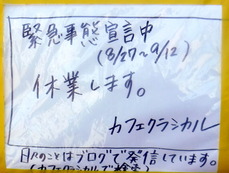 緊急事態宣言中
(8/27~9/12)
休業します。
カフェクラシカル
日々のことはブログで発信しています。
(カフェクラシカルで検索)